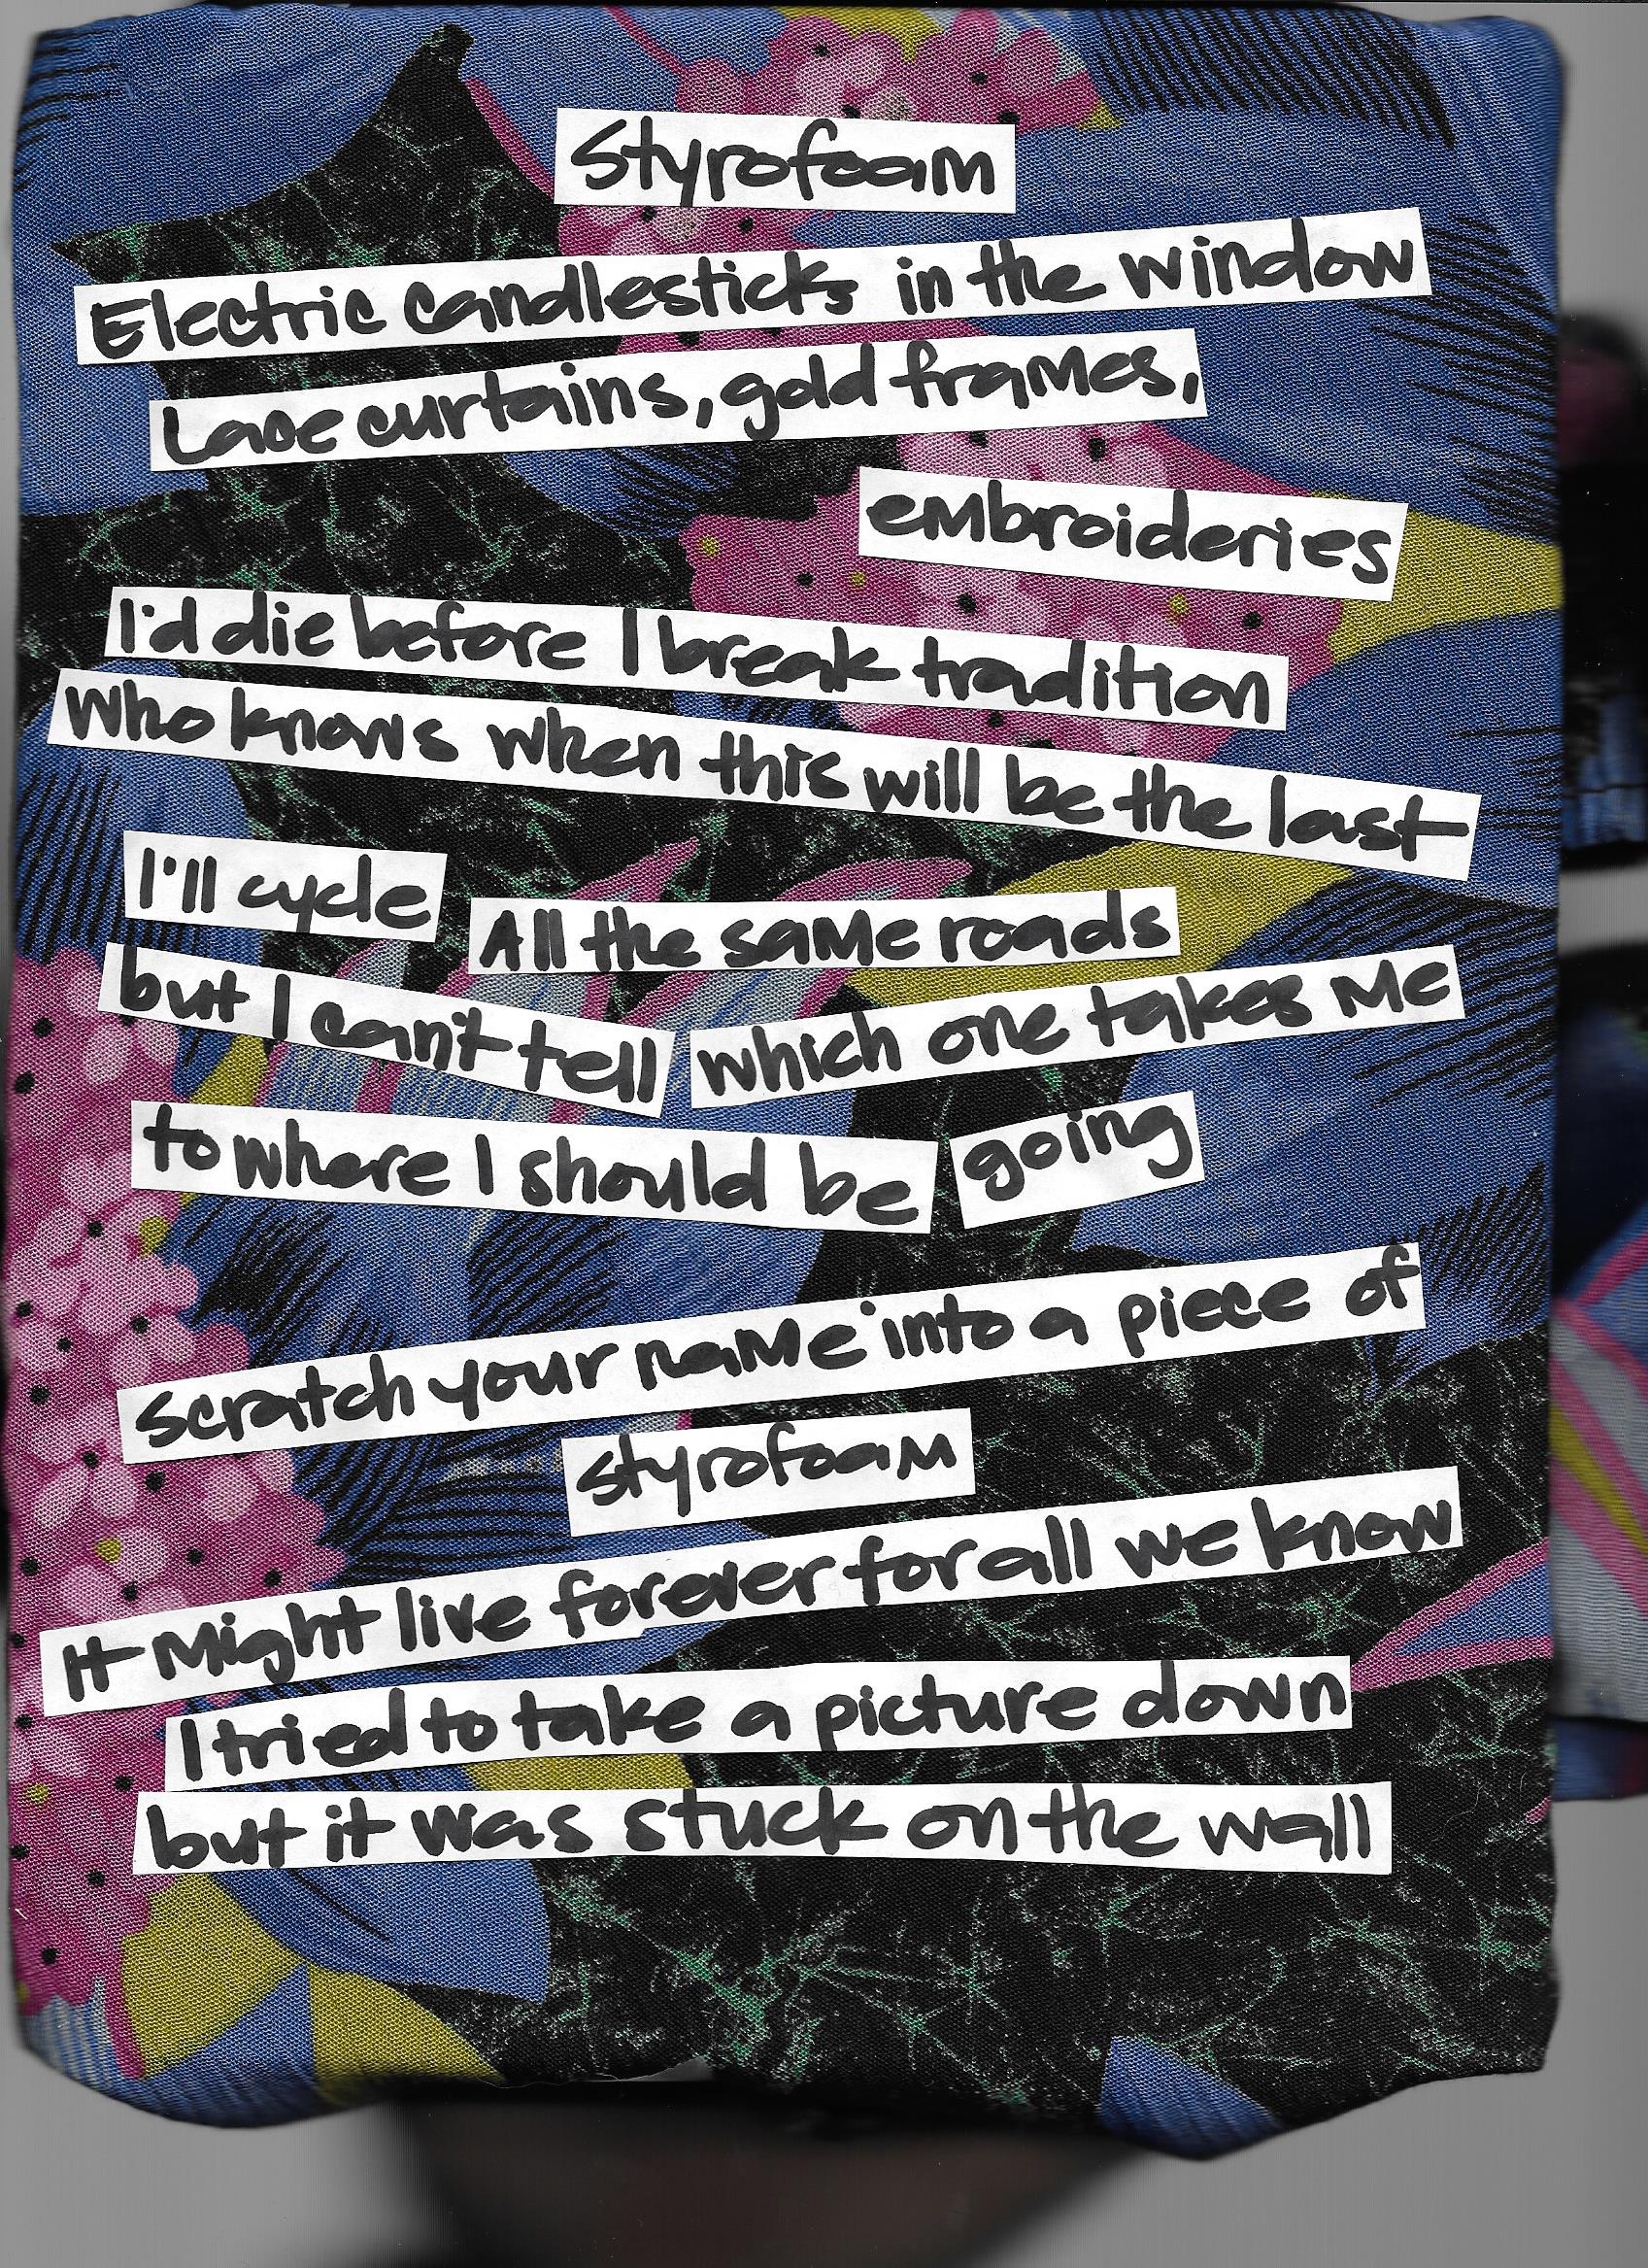 Styrofoam
Electric candlesticks in the window
Lace curtains, gold frames,
embroideries
I'd die before I break tradition
Who knows when this will be the last
I'll cycle All the same roads
but I can't tell which one takes me
to where I should be going
Scratch your name into a piece of
styrofoam
It might live forever for all we know
I tried to take a picture down
but it was stuck on the wall